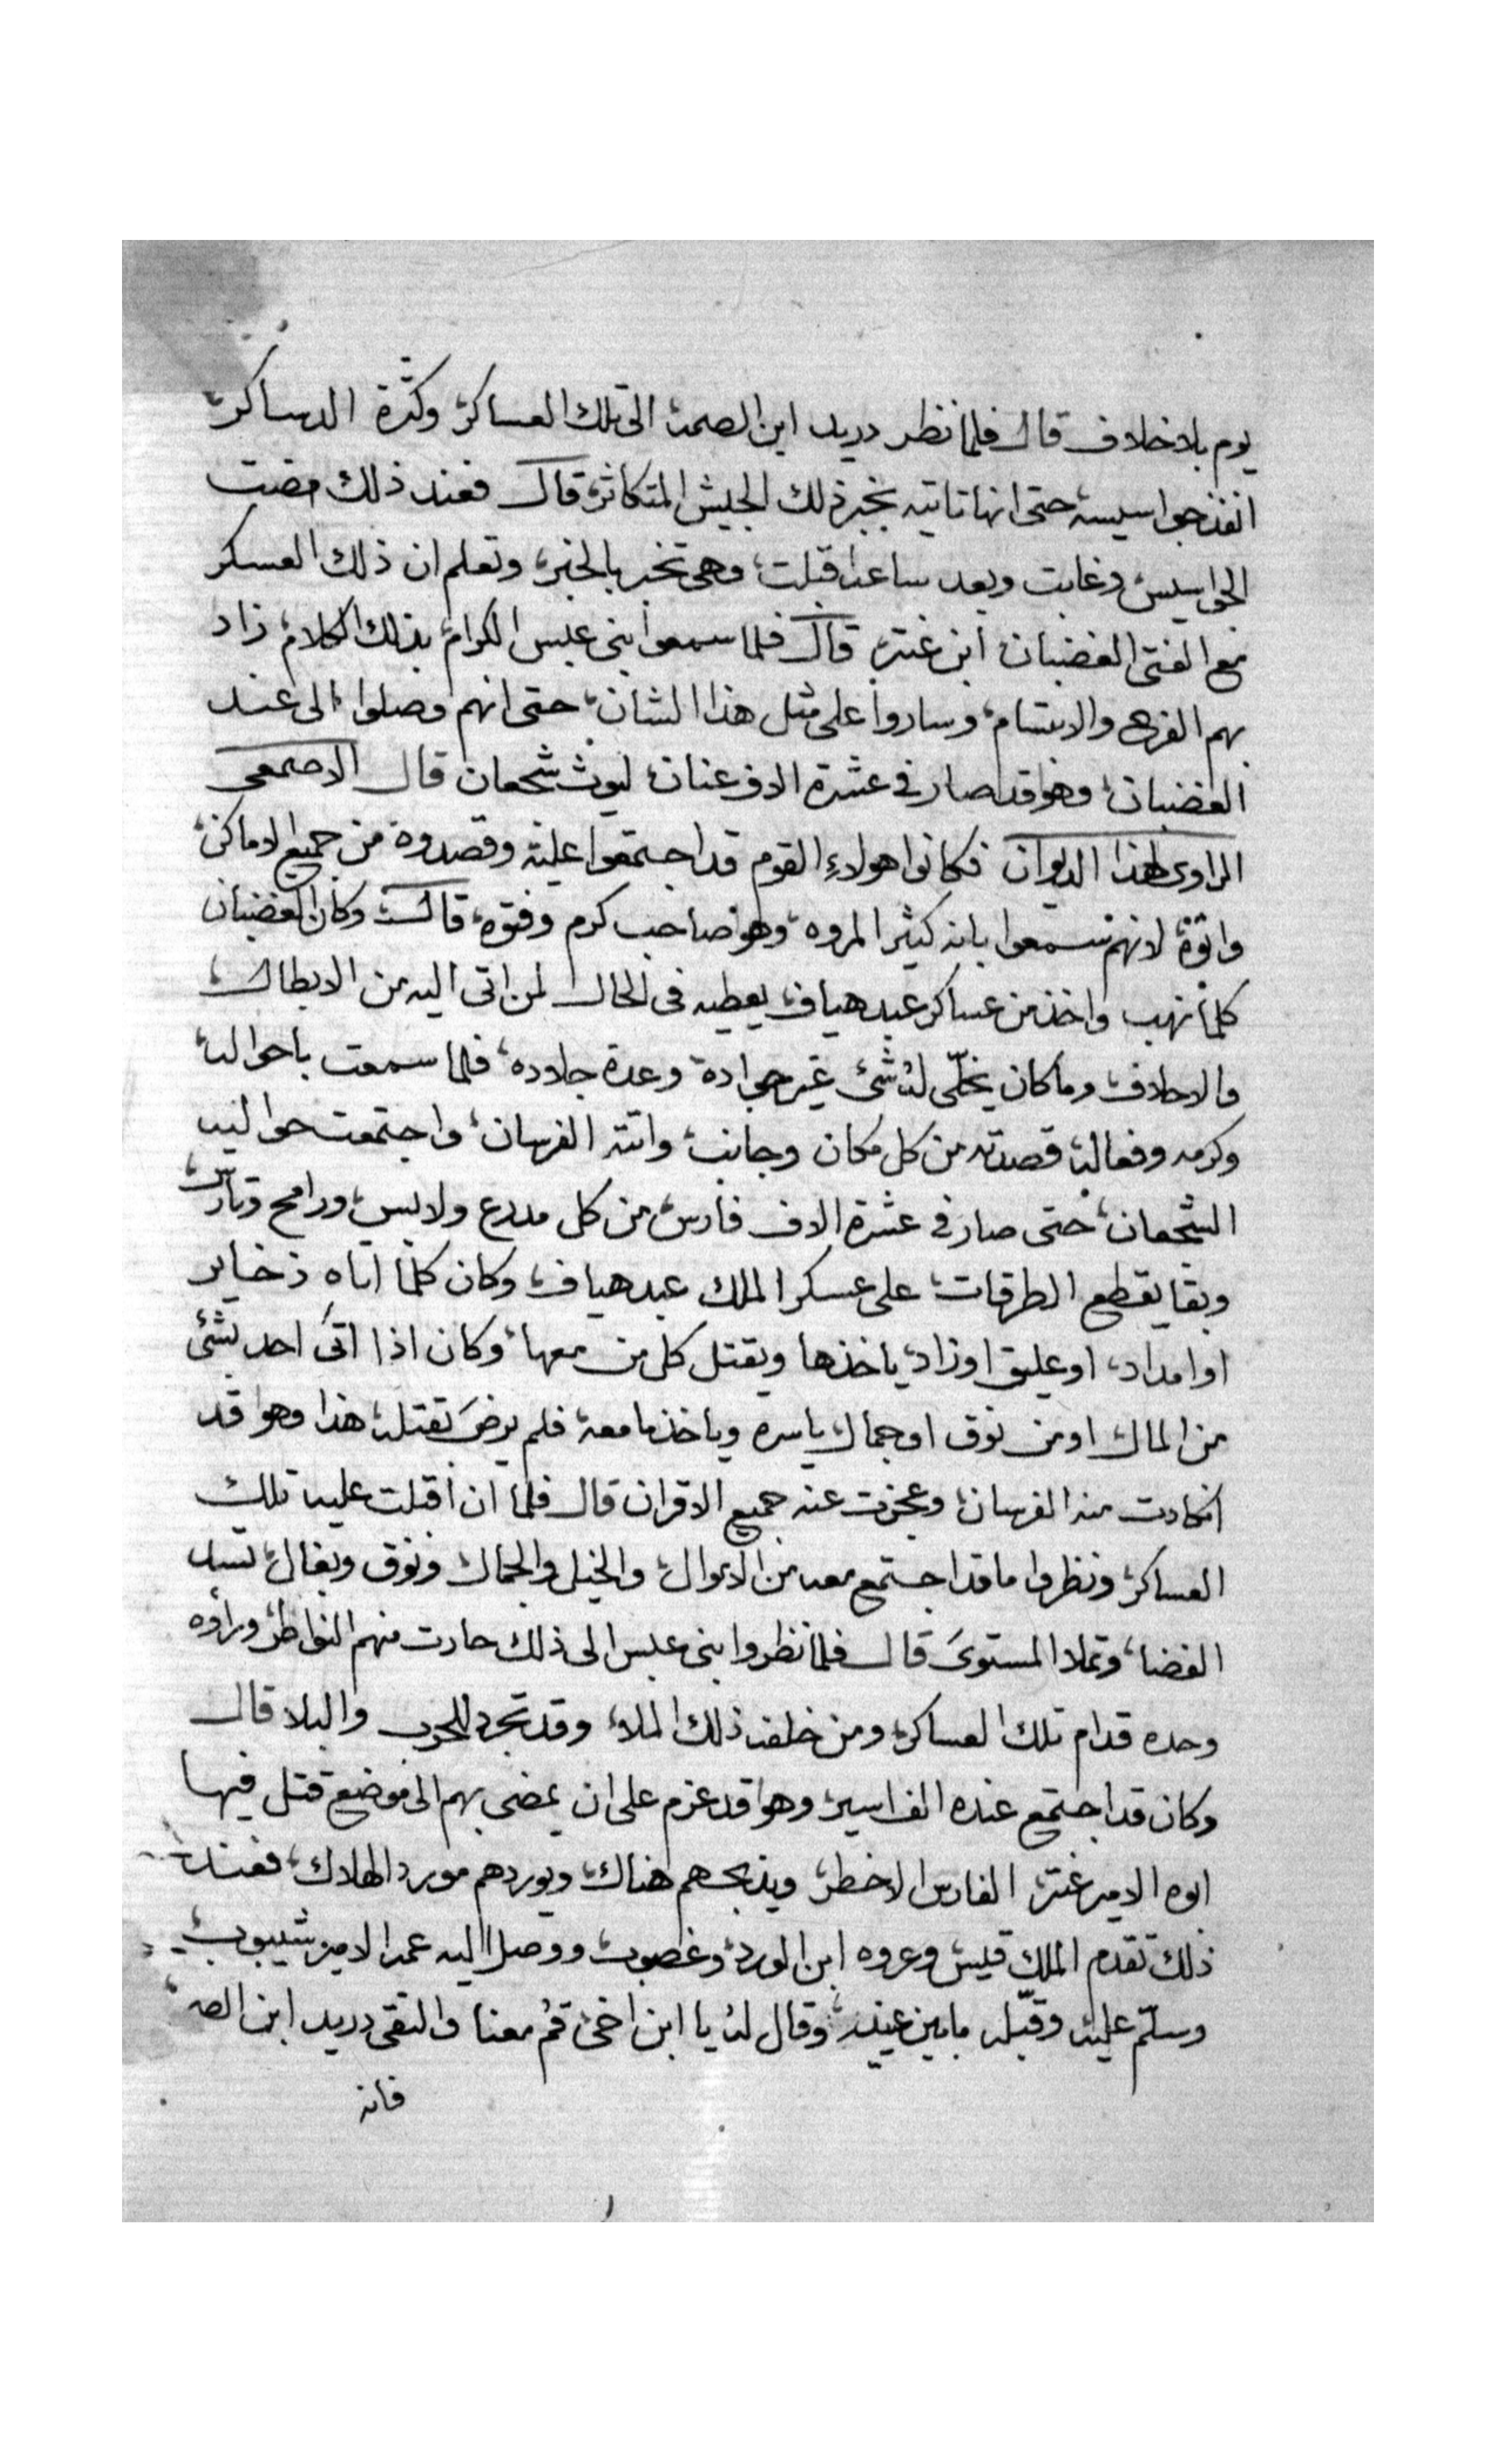 يوم بلا خلاف قال فلما نظر دريد ابن الصمه الى تلك العساكر وكثرة الدساكر
انفذ جواسيسه حتى انها تاتيه بخبر ذلك الجيش المتكاثر قال فعند ذلك مضت
الجواسيس وغابت وبعد ساعه اقبلت وهى تخبر بالخبر وتعلم ان ذلك العسكر
مع الفتى الغضبان ابن عنتر قال فلما سمعوا بنى عبس الكرام بذلك الكلام زاد
بهم الفرح والابتسام وساروا على مثل هذا الشان حتى انهم وصلوا الى عند
الغضبان وهو قد صار فى عشرة الاف عنان ليوث شجعان قال الاصمعى
الراوى لهذا الديوان فكانوا هولاء القوم قد اجتمعوا عليه وقصدوه من جميع الاماكن
واتوه لانهم سمعوا بانه كثير المروه وهو صاحب كرم وفتوه قال وكان الغضبان
كلما نهب واخذ من عساكر عبد هياف يعطيه فى الحال لمن اتى اليه من الابطال
والاحلاف وما كان يخلّى له شئ غير جواده وعدة جلاده فلما سمعت باحواله
وكرمه وفعاله قصدته من كل مكان وجانب واتته الفرسان واجتمعت حواليه
الشجعان حتى صار فى عشرة الاف فارس من كل مدرع ولابس ورامح وتارس
وبقا يقطع الطرقات على عسكر الملك عبد هياف وكان كلما اتاه ذخاير
او امداد او عليق او زاد ياخذها ويقتل كل من معها وكان اذا اتى احد بشئ
من المال او من نوق او جمال ياسره وياخذ ما معه فلم يرضى بقتله هذا وهو قد
انكادت منه الفرسان وعجزت عنه جميع الاقران قال فلما ان اقبلت عليه تلك
العساكر ونظروا ما قد اجتمع معه من الاموال والخيل والجمال ونوق وبغال تسد
الفضا وتملا المستوى قال فلما نظروا بنى عبس الى ذلك حارت منهم النواظر وراوه
وحده قدام تلك العساكر ومن خلفه ذلك الملا وقد تجرد للحرب والبلا قال
وكان قد اجتمع عنده الف اسير وهو قد عزم على ان يمضى بهم الى موضع قتل فيها
ابوه الامير عنتر الفارس الاخطر ويذبحهم هناك ويوردهم مورد الهلاك فعند
ذلك تقدم الملك قيس وعروه ابن الورد وغصوب ووصل اليه عمه الامير شيبوب
وسلّم عليه وقبّله ما بين عينيه وقال له يا ابن اخى قم معنا والتقى دريد ابن الصمه
فانه